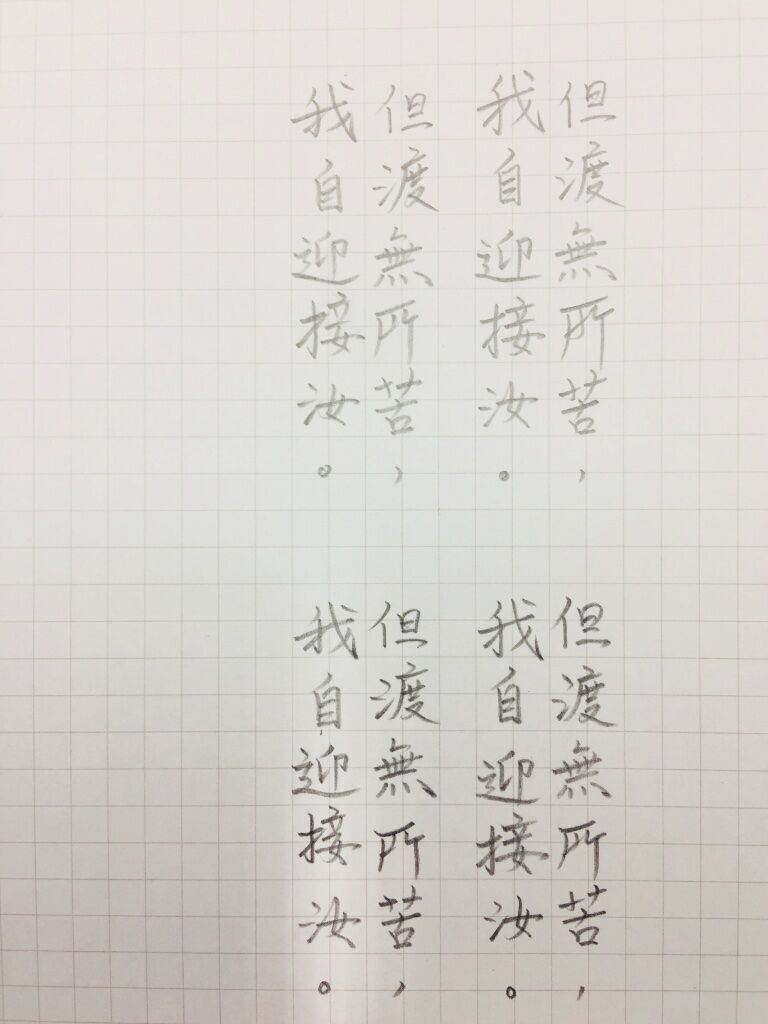 但渡無所苦，
我自迎接汝。
但渡無所苦，
我自迎接汝。
但渡無所苦，
我自迎接汝。
但渡無所苦，
我自迎接汝。